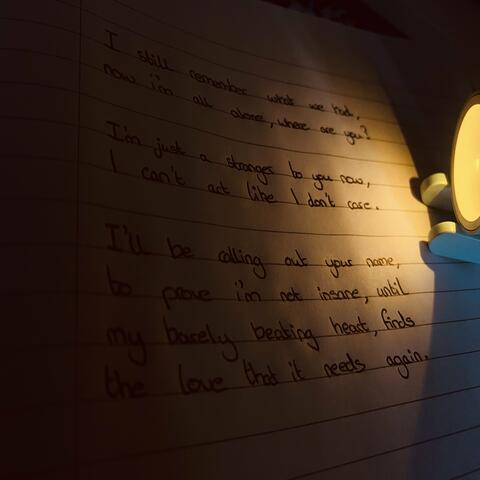 I still remember what we had,
now i'm all alone, where are you?
I'm just a stranger to you now,
I can't act like I don't care.
I'll be calling out your name,
to prove i'm not insane, until
my barely beating heart, finds
the love that it needs again.